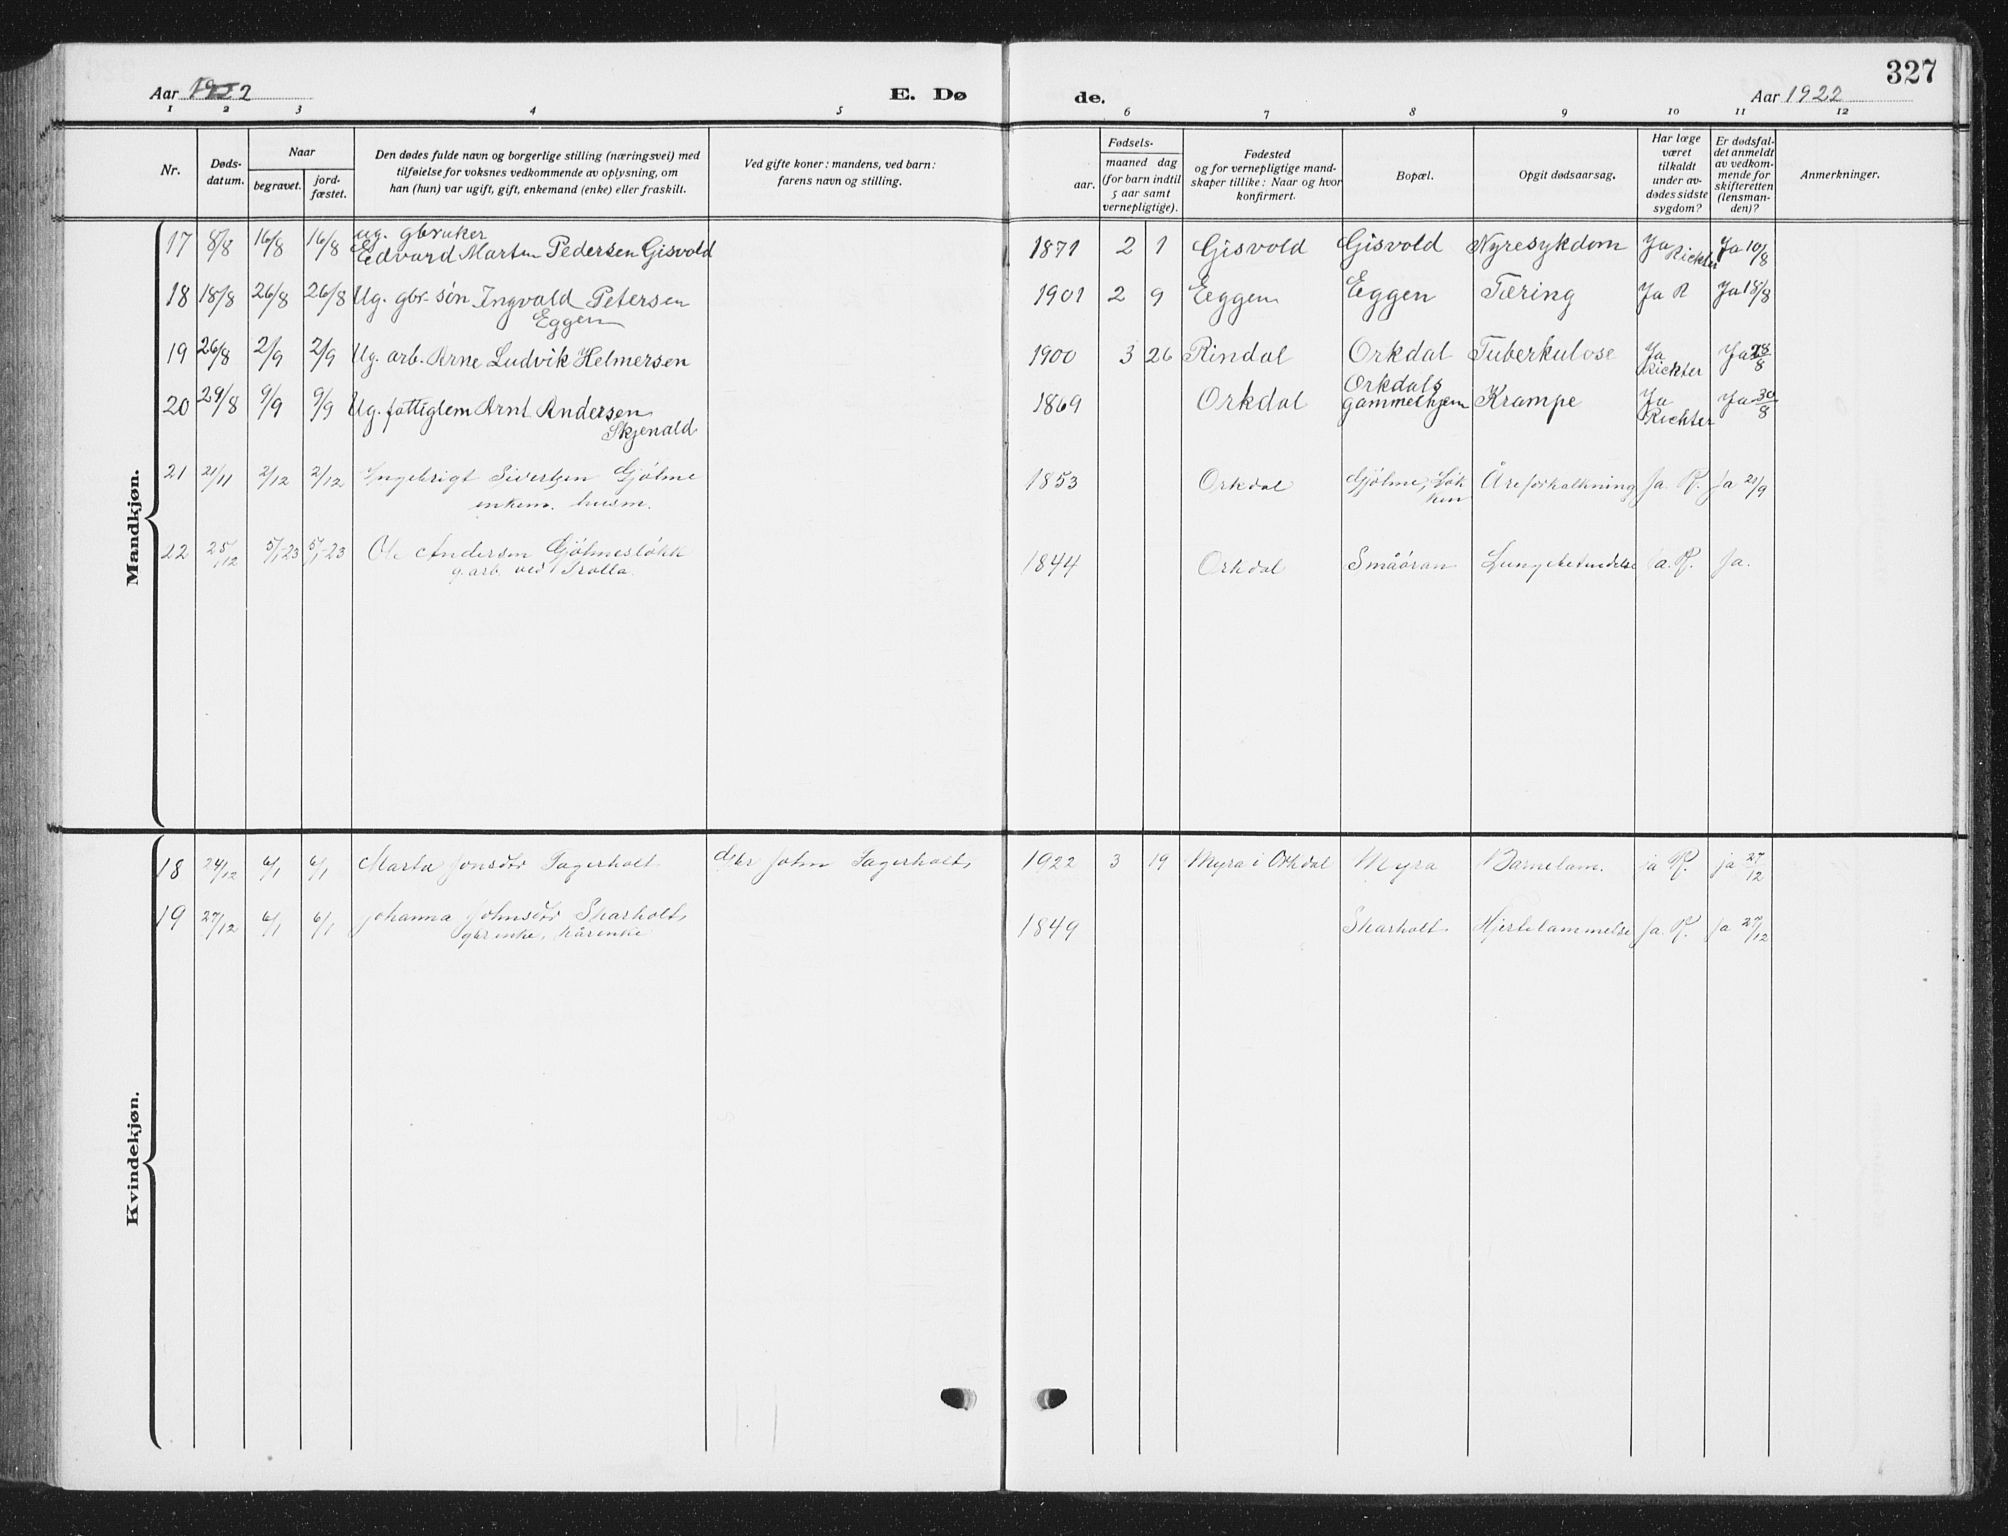 327
Aar 1922
E. Dø
de.
Aar 1922
1 2 3 4 5 6 7 8 9 10 11 12
Nr.
Døds-
datum.
Naar
begravet.
jord-
fæstet.
Den dødes fulde navn og borgerlige stilling (næringsvei) med
tilføielse for voksnes vedkommende av oplysning, om
han (hun) var ugift, gift, enkemand (enke) eller fraskilt.
Ved gifte koner: mandens, ved barn:
farens navn og stilling.
Fødsels-
aar.
maaned dag
(for barn indtil
5 aar samt
vernepligtige).
Fødested
og for vernepligtige mand-
skaper tillike: Naar og hvor
konfirmert.
Bopæl.
Opgit dødsaarsag.
Har læge
været
tilkaldt
under av-
dødes sidste
sygdom?
Er dødsfal-
det anmeldt
av vedkom-
mende for
skifteretten
(lensman-
den)?
Anmerkninger.
Mandkjøn.
ug. gbruker
17 8/8 16/8 16/8 Edvard Martin Pedersen Gisvold 1871 2 1 Gisvold Gisvold Nyresykdom Ja Richter Ja 10/8
18 18/8 26/8 26/8 Ug. gbr. søn Ingvald Petersen 1901 2 9 Eggen Eggen Tæring Ja R Ja 18/8
Eggen
19 26/8 2/9 2/9 Ug. arb. Arne Ludvik Helmersen 1900 3 26 Rindal Orkdal Tuberkulose Ja Richter Ja 28/8
20 29/8 9/9 9/9 Ug. fattiglem Arnt Andersen 1869 Orkdal Orkdals gammelhjem Krampe Ja Richter Ja 30/8
Skjenald
21 21/11 2/12 2/12 Ingebrigt Sivertsen Gjølme 1853 Orkdal Gjølme, Løk- Åreforkalkning Ja. R. ja 21/9
enkem. husm. ken
22 25/12 5/1-23 5/1-23 Ole Andersen Gjølmesløkk 1844 Orkdal Småøran Lungebetændelse Ja. R. Ja.
g. arb. ved Trolla.
Kvindekjøn.
18 24/12 6/1 6/1 Marta Jonsdtr Fagerholt gbr John Fagerholt 1922 3 19 Myra i Orkdal Myra Barnelam. ja R. ja 27/12
19 27/12 6/1 6/1 Johanna Johnsdtr Skarholt 1849 Skarholt Hjertelammelse Ja. R. ja 27/12
gbr enke, kårenke